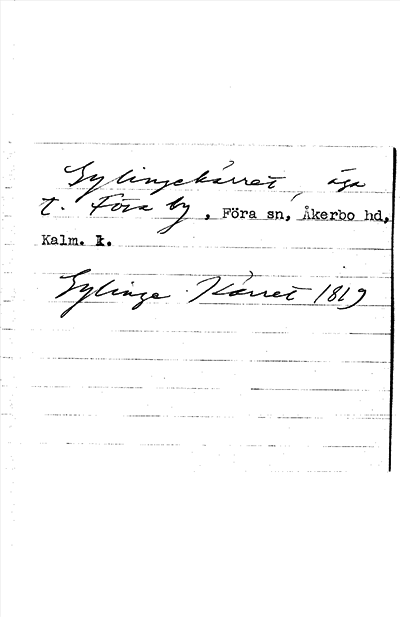 Gylingekärret, äga
t. Föra by, Föra sn, Åkerbo hd,
Kalm. l.
Gylinge Kärret 1819